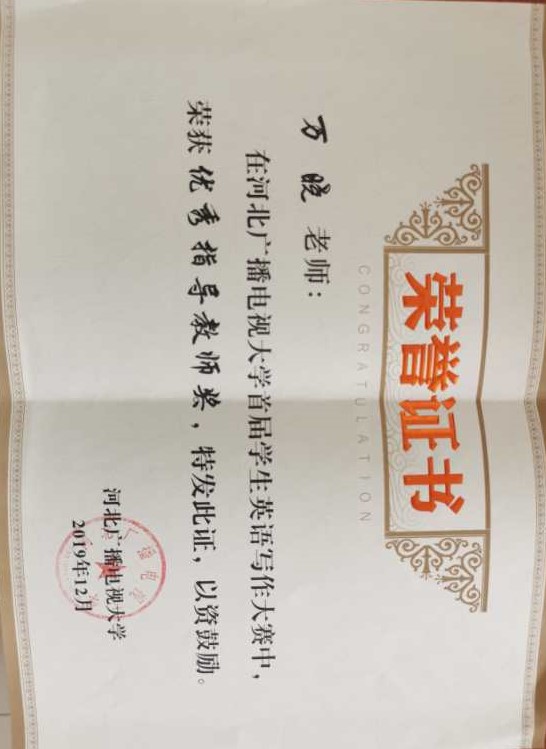 荣誉证书
CONGRATULATION
万晓 老师：
在河北广播电视大学首届学生英语写作大赛中，
荣获优秀指导教师奖，特发此证，以资鼓励。
河北广播电视大学
2019年12月